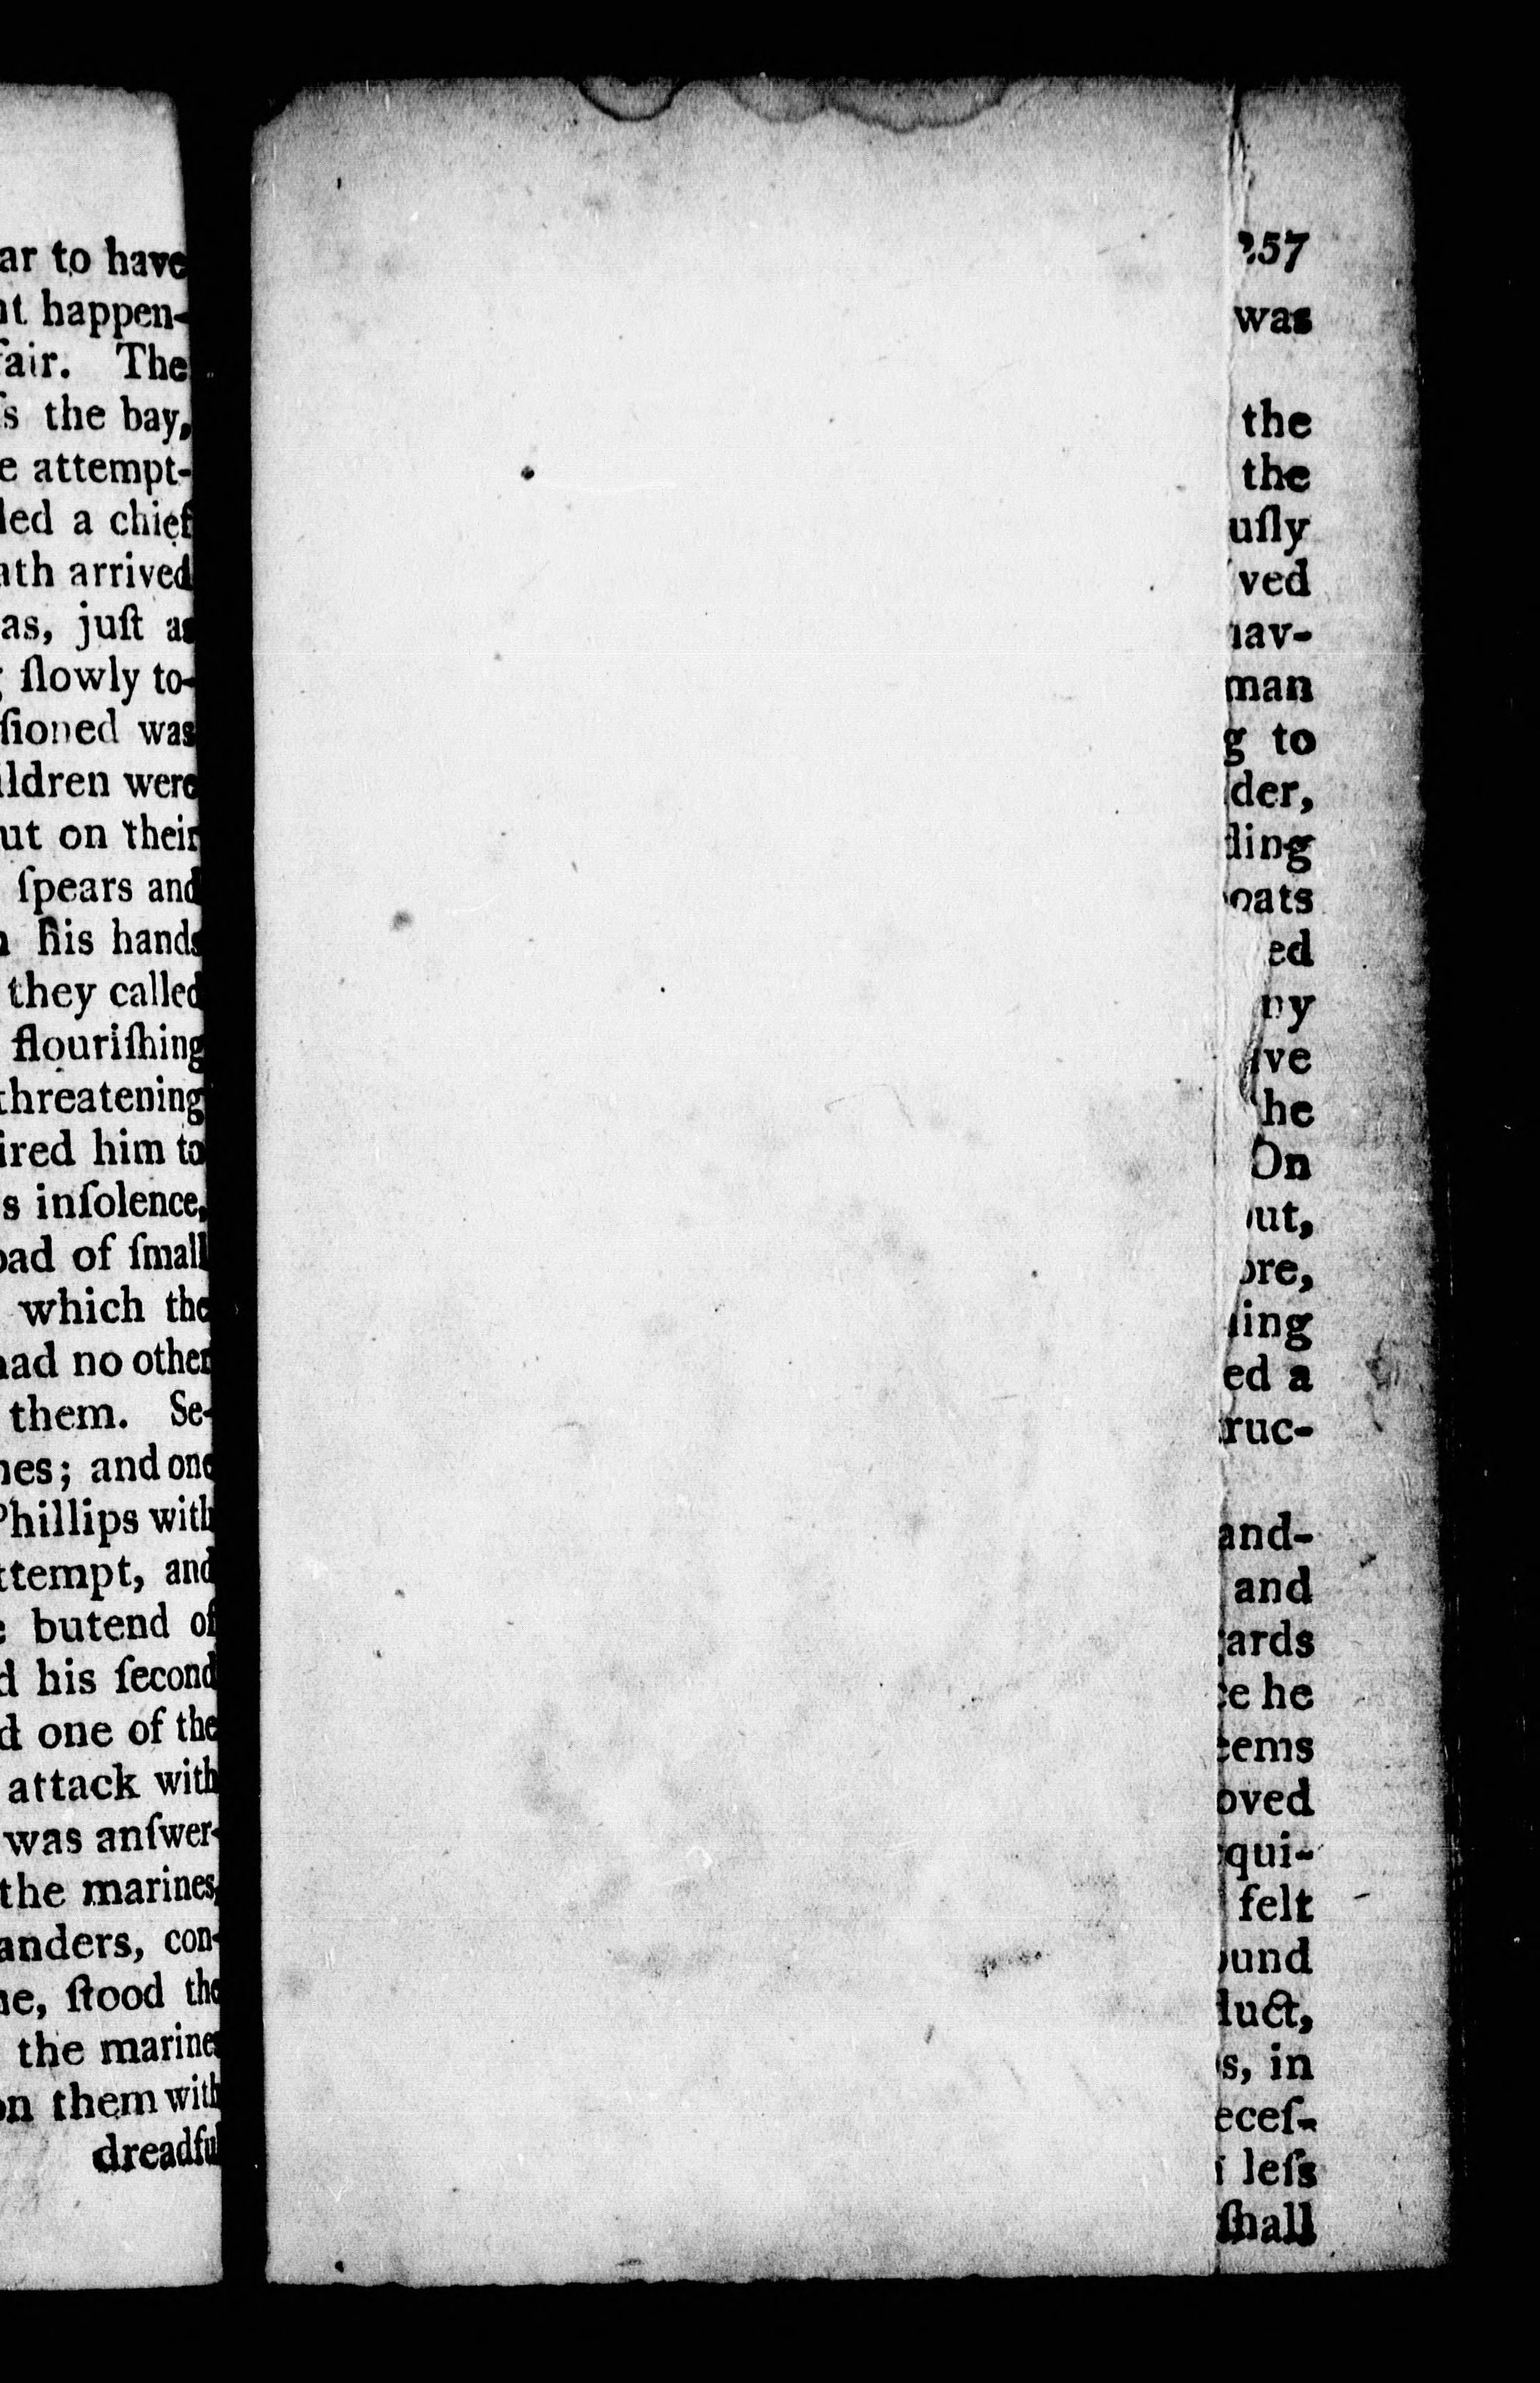 ar to have
nt happen-
fair. The
ſs the bay,
e attempt-
led a chief
ath arrived
as, juſt as
g ſlowly to-
ſioned was
ildren were
ut on their
ſpears and
n his hands
they called
flouriſhing
threatening
ired him to
s inſolence,
oad of ſmall
which the
had no other
them. Se-
nes; and one
Phillips with
ttempt, and
e butend of
d his ſecond
d one of the
attack with
was anſwer-
the marines,
anders, con-
ne, ſtood the
the marines
on them with
dreadful
257
was
the
the
uſly
ved
hav-
man
g to
der,
ding
oats
ed
ny
ive
he
On
out,
ore,
ling
ed a
truc-
and-
and
gards
ce he
eems
oved
cqui-
felt
ound
duct,
s, in
eceſ-
leſs
ſhall